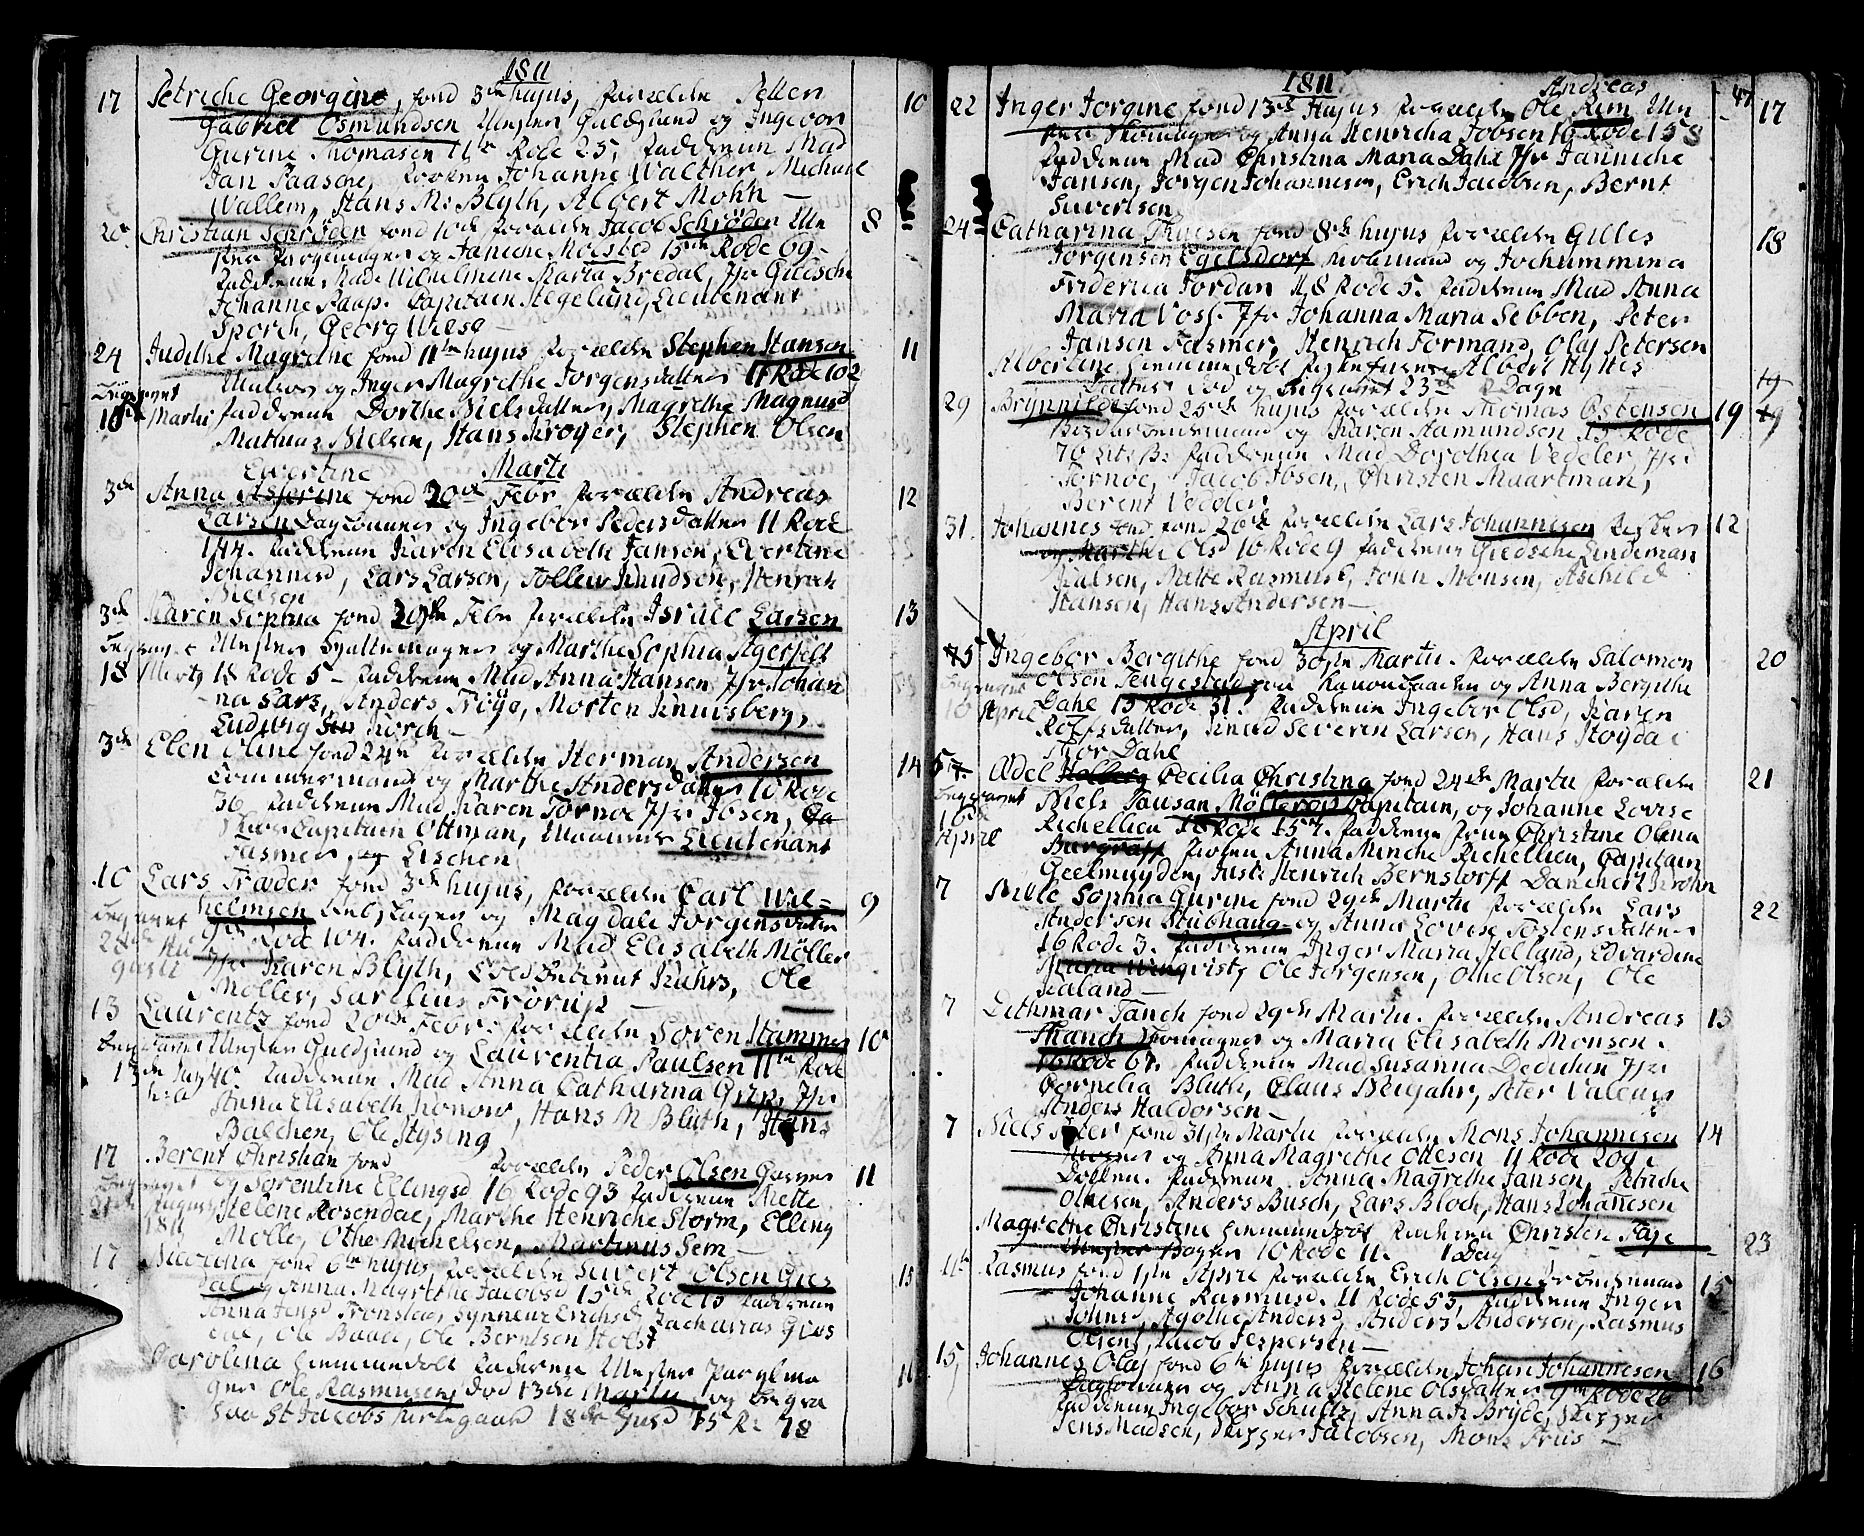 1811
17 Petriche Georgine, fond 3de hujus, forældre Petter 10
Gabriel Osmundsen Mester Guldsmed og Ingebor
Gurine Thomasen 11te Rode 25, Fadderne Mad
Jan Paasche, Johanne Walther Michael
Wallem, Hans M: Blyth, Albert Mohn —
20 Christian Schrøder fond 10de forældre Jacob Schrøder 8
og Janiche Molsted 15de Rode 69 -
Mad Wilhelmine Maria Bredal, Jfr Giedsche
Johanne Paasc. Capitain Segelund, Lieutenant
Sporch, Georg Wiese —
24 Judithe Magrethe fond 11te hujus forældre Stephen Hansen 11
og Inger Magrethe Jorgensdatter 11 Rode 102
18 Martii fadderne Dorthe Nielsdatter, Magrethe Magnusd
Mathias Nielsen, Hans Krøger, Stephen Olsen
Evertine Martii
3de Anna Asserine fond 20de Febr forældre Andreas 12
Larsen Dagløunner og Ingebor Pedersdatter 11 Rode
144. fadderne Karen Elisabeth Jansen, Evertine
Johannesd, Lars Larsen, Tollew Knudsen, Henrich
Nielsen
3de Karen Sophia fond Febr forældre Israel Larsen 13
Mester og Marthe Sophia Agerfelt
18 Martz 18 Rode 5 - fadderne Mad Anna Hansen Jfr Johan
na Lars, Anders Trøye, Morten Knudsberg,
Ludwig Korch -
3de Elen Oline fond 24de forældre Herman Andersen 14
Tommermand og Marthe Andersdatter 16 Rode
36 fadderne Mad Karen Tornoe Jfr Ibsen,
Capitain Ottman, Lieutenant
Fasmer, og Eischen
10 Lars Træder fond 3de hujus, forældre Carl Wil= 9
helmsen og Magdale Jorgensdatter
Rode 104. fadderne Mad Elisabeth Møller
28de Jfr Karen Blyth, Kuhrs, Ole
Møller, Sarelius Frørup —
13 Laurentz fond 20de Febr: forældre Søren Hammer 10
Mester Guldsmed og Laurentia Paulsen 11te Rode
13de 40. Fadderne Mad Anna Catharina Grip, Jfr
Anna Elisabeth Konow, Hans M Blüth, Hans
Balchen, Ole Hysing
17 Berent Christian fond forældre Peder Olsen 11
og Sørentine Ellingsd 16 Rode 93 fadderne Mette
Helene Rosendal, Marthe Henriche Storm, Elling
1811 Molle, Othe Michelsen, Martinus Sem —
17 Nicolina fond 6te hujus, forældre Suvert Olsen Gies 15
dal og Anna Magrethe Jacobsd 15de Rode 15 fadderne
Anna Jensd Fronslad, Synneue Erichsd, Zacharias Gies
dal, Ole Baade, Ole Berntsen Holst
Carolina hjemmedøbt Faderen Mester Parylma
ger Ole Rasmusen, Død 13de Martii og begra
St Jacobs Kirkegaard 18de 15 R: 78
1811 Andreas 47
22 Inger Jorgine fond 13de Hujus forældre Ole Rem 17
Skomager og Anna Henricha Jobsen 16 Rode 158
fadderne Mad Christina Maria Dahl Jfr Janniche
Jansen, Jorgen Johannesen, Erich Jacobsen, Bernt
Suvertsen
24 Catharina Thuesen fond 8de hujus forældre Gilles 18
Jorgensen Egelsdorf og Jochummina
Friderica Jordan 18 Rode 5. fadderne Mad Anna
Maria Voss. Jfr Johanna Maria Sebben, Peter
Jansen Fasmer, Henrich Formand, Olaf Petersen
Albertine hjemmedøbt Albert Hylles 19
Datter død og begravet 23de 2 Dage
29 Brynnilde fond 25de hujus forældre Thomas Ostensen 19
og Karen Aamundsen 15 Rode
70 Lit: B: fadderne Mad Dorothea Vedeler Jfr:
Tornøe, Jacob Ibsen, Christen Maartman,
Berent Vedeler
31. Johannes fond 26de forældre Lars Johannesen 12
og Marthe Olsd 16 Rode 9 fadderne Giedsche Lindeman
Paulsen, Mette Rasmusd, John Monsen, Aschild
Hansen, Hans Andersen —
April
5 Ingebor Bergithe fond 30te Martii. forældre Salomon 20
Olsen Tengestad og Anna Bergithe
10 April Dahl 15 Rode 31. fadderne Ingebor Olsd, Karen
Rolfsdatter, Severen Larsen, Hans Høydal
Thor Dahl
5 Ædel Cecilia Christina fond 24de Martii forældre 21
Niels Tausan Møllerop Capitain, og Johanne Lovise
April Richellieu 18 Rode 157. fadderne Fru Christine Olena
Burgraff Anna Minche Richellieu, Capitain
Geelmuyden, Juste Henrich Bernstorff Danchert Krohn
7 Mille Sophia Gurine fond 29de Martii forældre Lars 22
Andersen Stubhaug og Anna Lovise Tostensdatter
16 Rode 3. fadderne Inger Maria Helland, Edvardine
Maria Winqvist, Ole Jorgensen, Othe Olsen, Ole
Jæland —
7 Dithmar Tanch fond 29de Martii. forældre Andreas 13
Thanch og Maria Elisabeth Monsen.
16 Rode 67. fadderne Mad Susanna Dedichen Jfr:
Cornelia Blüth, Claus Neujahr, Peter Valeur
Anders Haldorsen —
7 Niels Peter fond 31te Martii forældre Mons Johannesen 14
og Anna Magrethe Ottesen 11 Rode 209
fadderne Anna Magrethe Jansen, Petriche
Olnesen, Anders Busch, Lars Bloch, Hans Johannesen
Magrethe Christine hjemmedøbt Faderen Christen Faye 23
Mester Bager 10 Rode 11. 1 Dag
11te Rasmus fond 1ste April forældre Erich Olsen 15
Johanne Rasmusd. 11 Rode 53, fadderne Inger
Johnsd, Agothe Andersd, Anders Andersen, Rasmus
Olsen, Jacob Jespersen —
15 Johannes Olaj fond 6te hujus forældre Johan Johannesen 16
Dagløunner og Anna Helene Olsdatter 9de Rode 26
fadderne Ingebor Schultz, Anna Fr Bryde, Skipper
Jens Madsen, Skipper Jacobsen, Mons Friis —